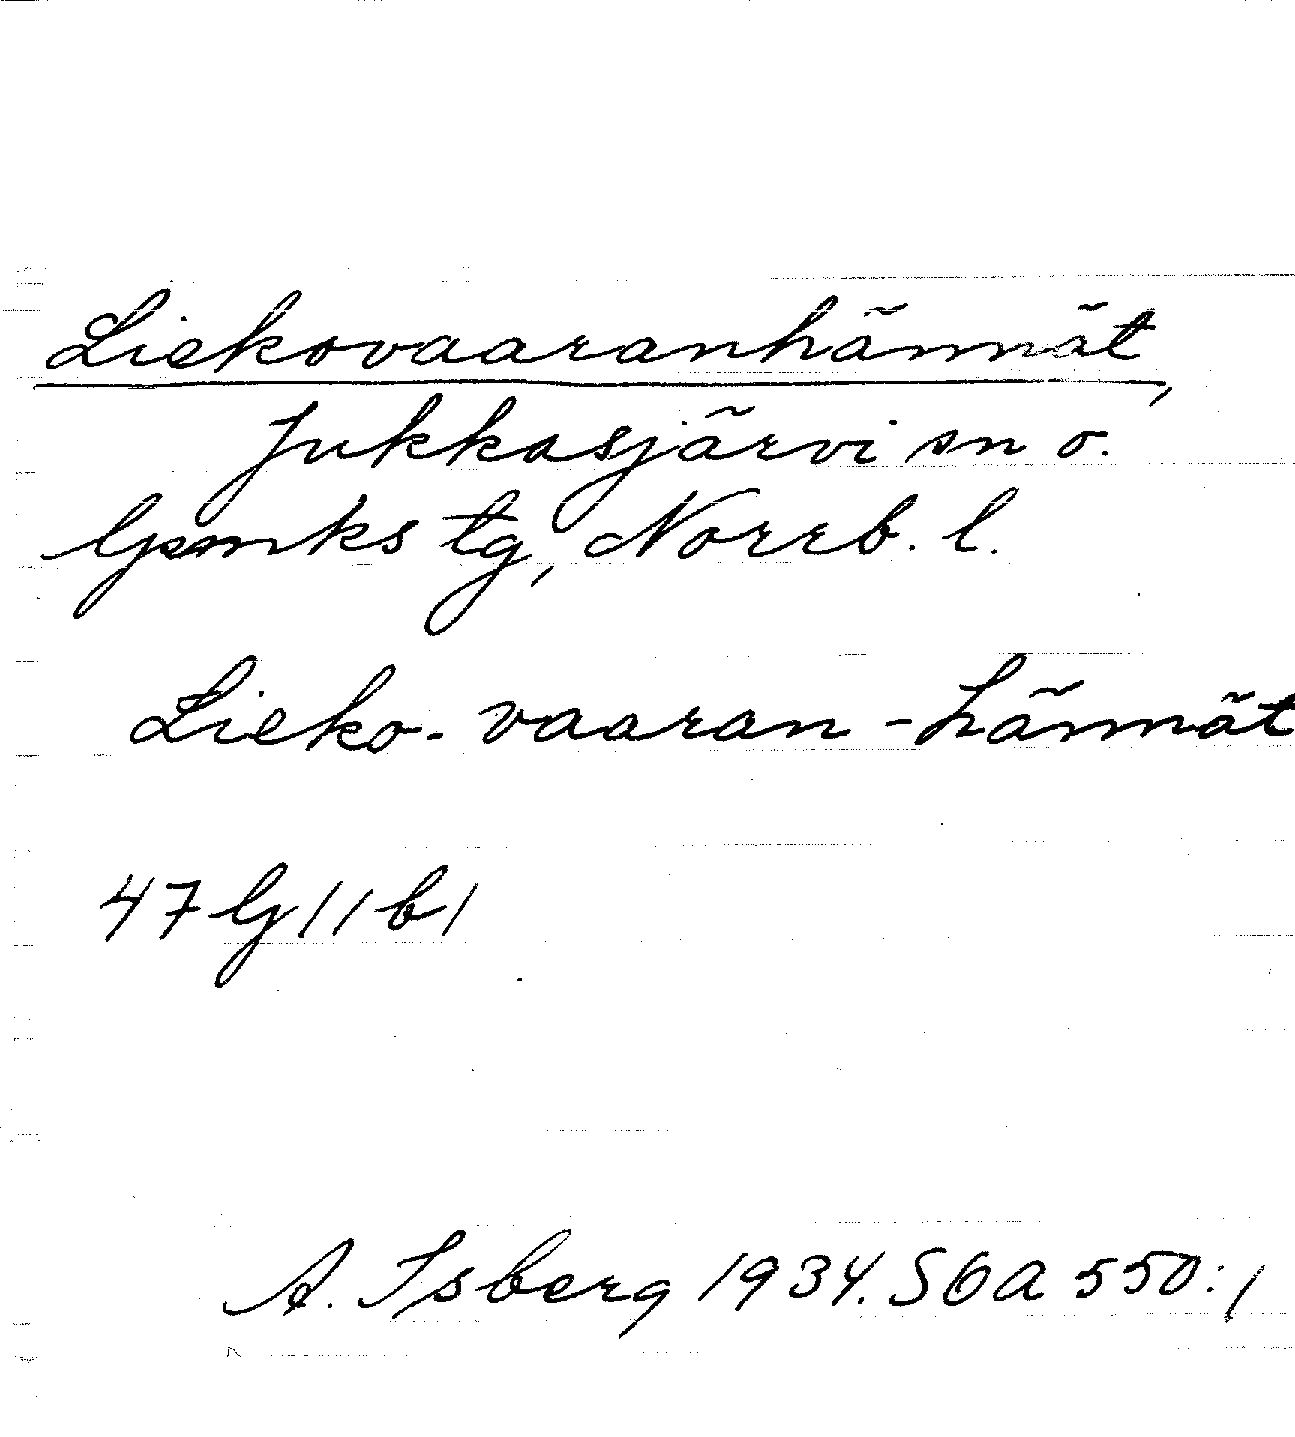 Liekovaaranhännät,
Jukkasjärvi sn o.
lpmks tg, Norrb. l.
Lieko-vaaran-hännät
47 G 11 b 1
A. Isberg 1934. SOA 550:1